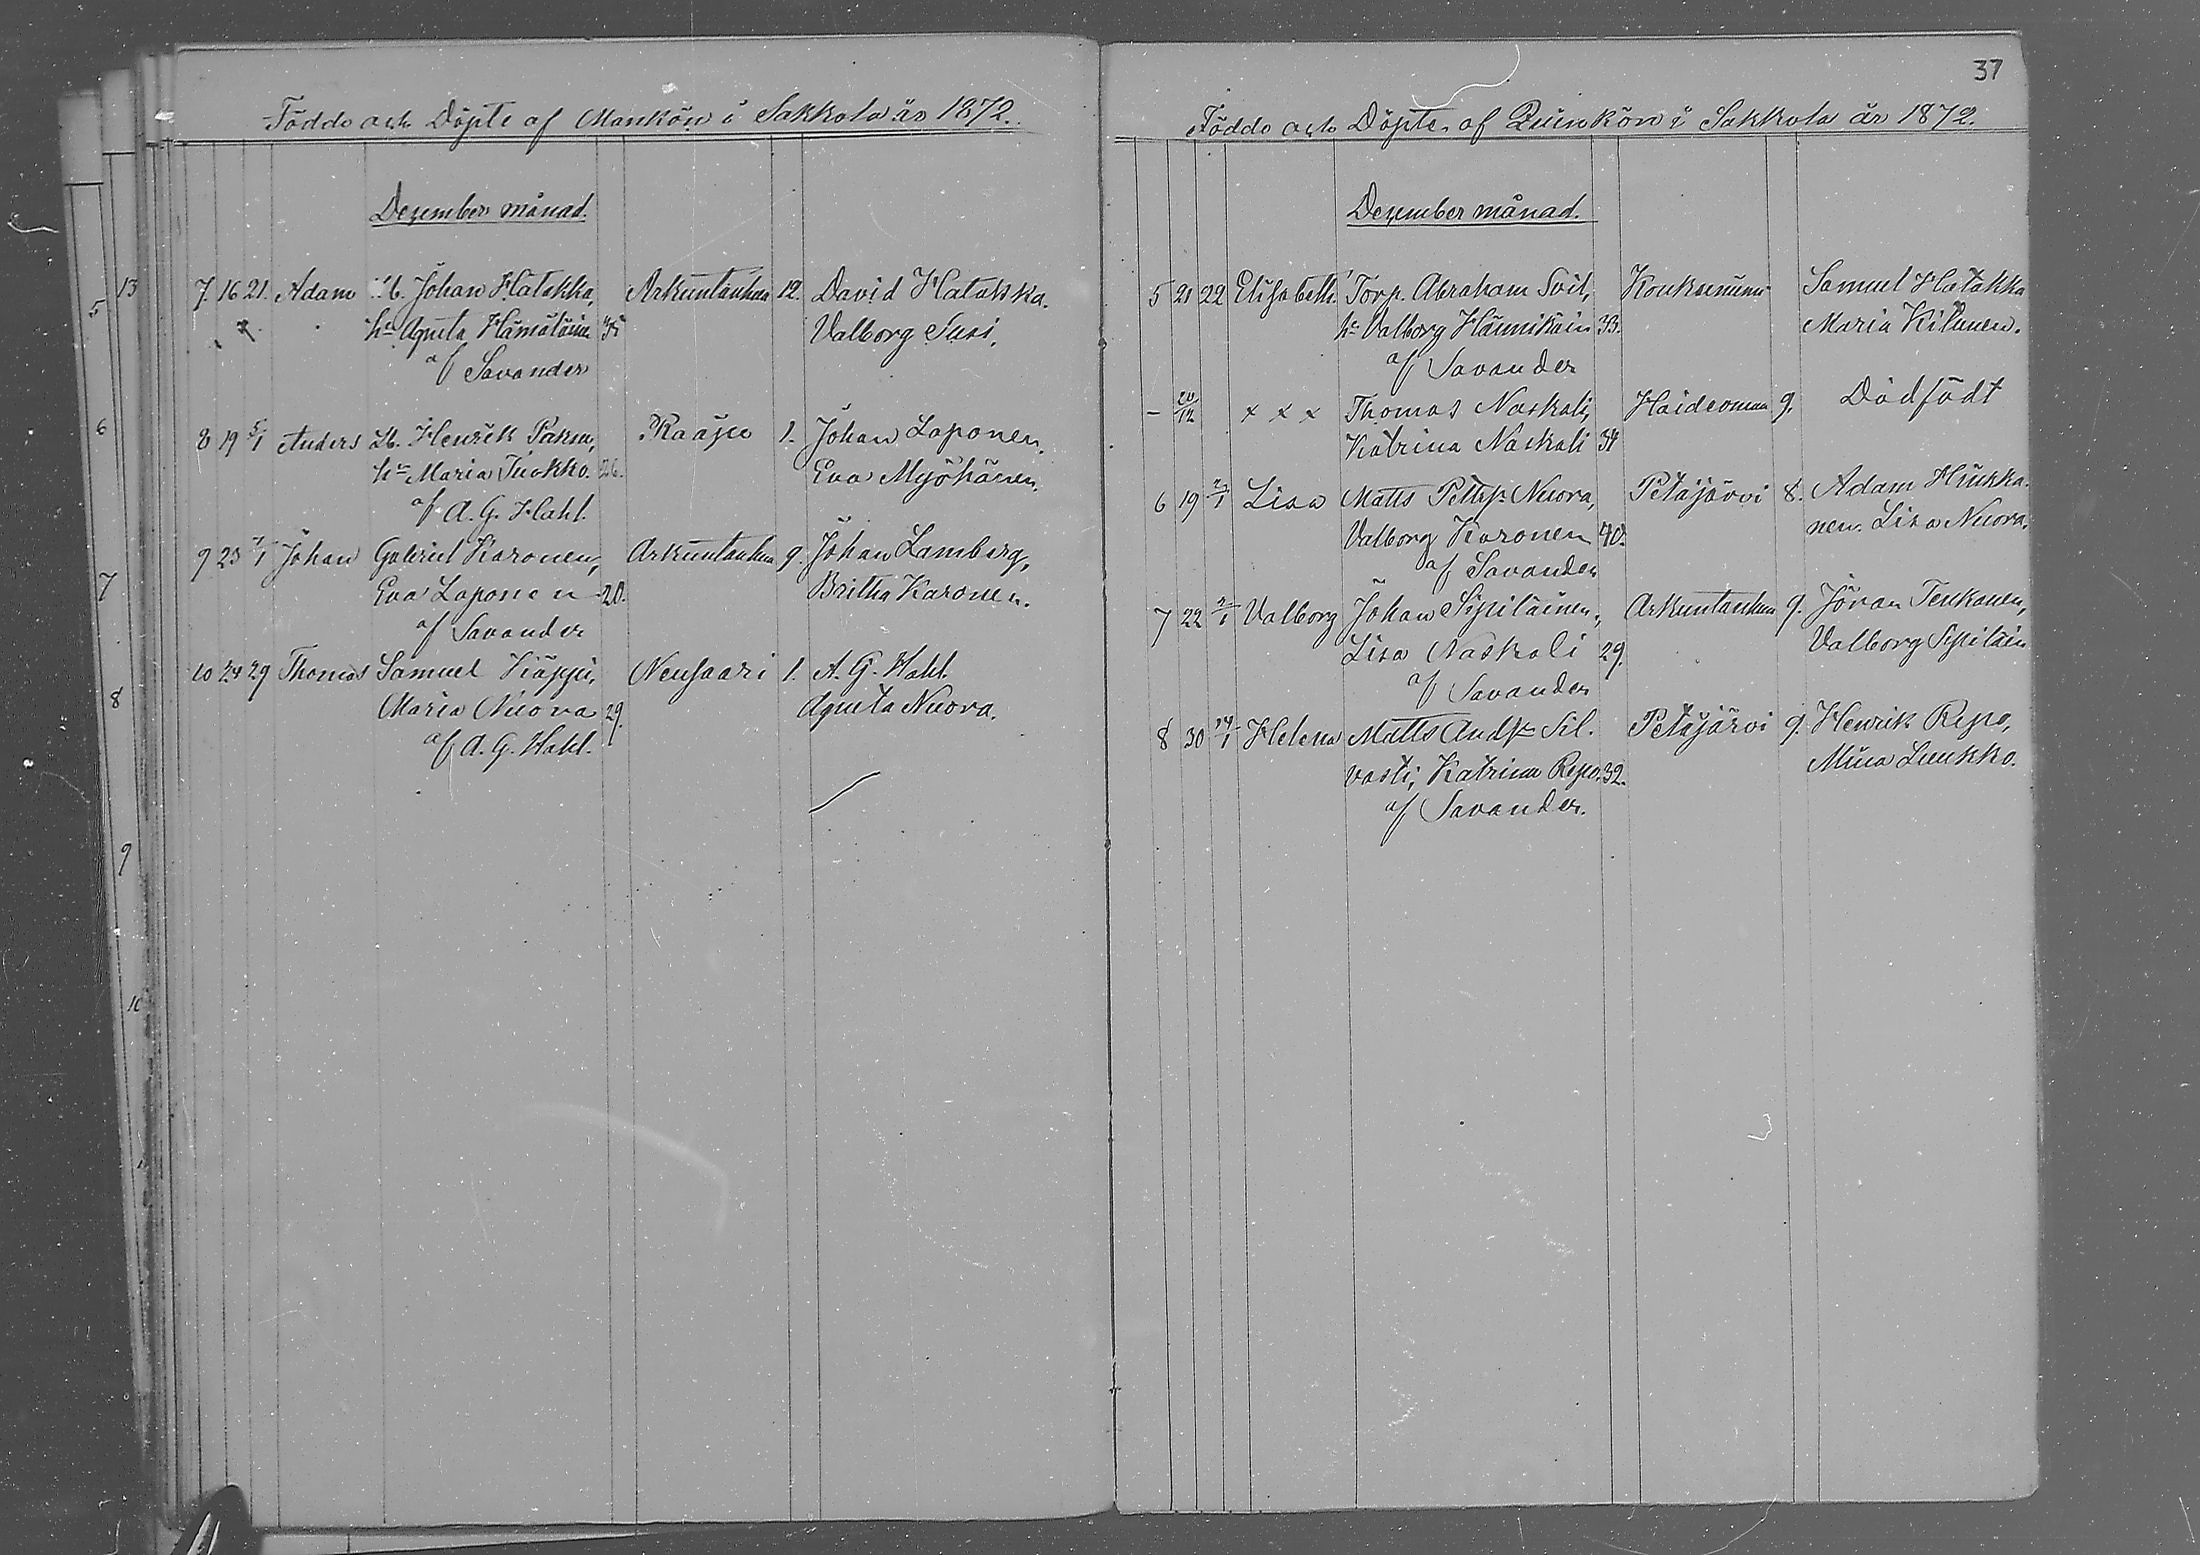 Födde och Döpte af Mankön i Sakkola år 1872.
Dezember månad.
7. 16 21. Adam Lb. Johan Hatakka, Arkuntanhua 12. David Hatakka.
hu Agneta Hämäläin 35 Valborg Susi.
af Savander
8 19 5/1 Anders Lb. Henrik Paksu, Raaju 1. Johan Laponen.
hu Maria Tuokko. 26. Eva Myöhänen.
af A. G. Hahl.
9 23 2/1 Johan Gabriel Karonen, Arkuntanhua 9. Johan Lamberg,
Eva Laponen 20. Britha Karonen.
af Savander
10 24 29 Thomas Samuel Käppi, Neusaari 1. A. G. Hahl.
Maria Nuora 29. Agneta Nuora.
af A. G. Hahl.
5
13
6
7
8
9
10
37
Födde och Döpte af Quinkön i Sakkola år 1872.
Dezember månad.
5 21 22 Elisabeth Torp. Abraham Soit, Koukunniemi Samuel Hatakka
hu Valborg Hännikäin 33. Maria Kilunen.
af Savander
– 20/12 x x x Thomas Naskali, Haideromaa 9. Dödfödt
Katrina Naskali 34
6 19 2/1 Lisa Matts Pettsp. Nuora, Petäjärvi 8. Adam Hiukka-
Valborg Karonen 40. nen. Lisa Nuora.
af Savander
7 22 2/1 Valborg Johan Sipiläinen, Arkuntanhua 9. Jöran Teukonen,
Lisa Naskali 29. Valborg Sipiläin
af Savander
8 30 14/1 Helena Matts Andsp. Sil- Petäjärvi 9. Henrik Repo,
vasti, Katrina Repo. 32. Mina Luukko.
af Savander.